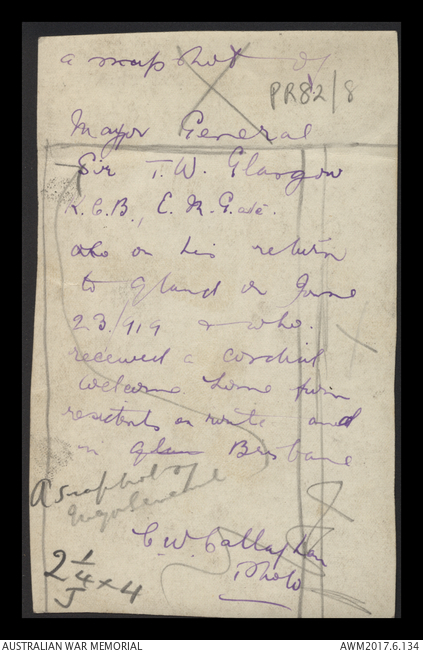 a snap shot of
PR82/8
Major General
Sir T.W. Glasgow
K.C.B.,
who on his return
to Q'land on June
23/919 & who
received a cordial
welcome home from
residents en route and
in Brisbane
A snapshot of
C.W. Callaghan
Photo
2 1/4 x 4
J
AUSTRALIAN WAR MEMORIAL
AWM2017.6.134